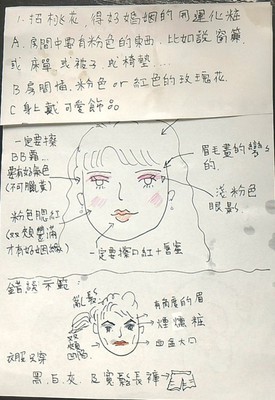 1. 招桃花，得好婚姻的開運化粧
A. 房間中要有粉色的東西，比如說窗簾，
或床單或被子，或椅墊....
B 房間插粉色or紅色的玫瑰花
C 身上戴可愛飾品
一定要擦
BB霜...
要有好氣色
(不可臘黃)
眉毛畫的彎
的.
淺粉色
眼影
粉色腮紅
(双頰豐滿
才有好姻緣
一定要擦口紅+唇蜜
錯誤示範:
亂髮
有角度的眉
煙燻粧
血盆大口
双頰
凹陷
衣服只穿
黑、白、灰、及寬鬆長褲